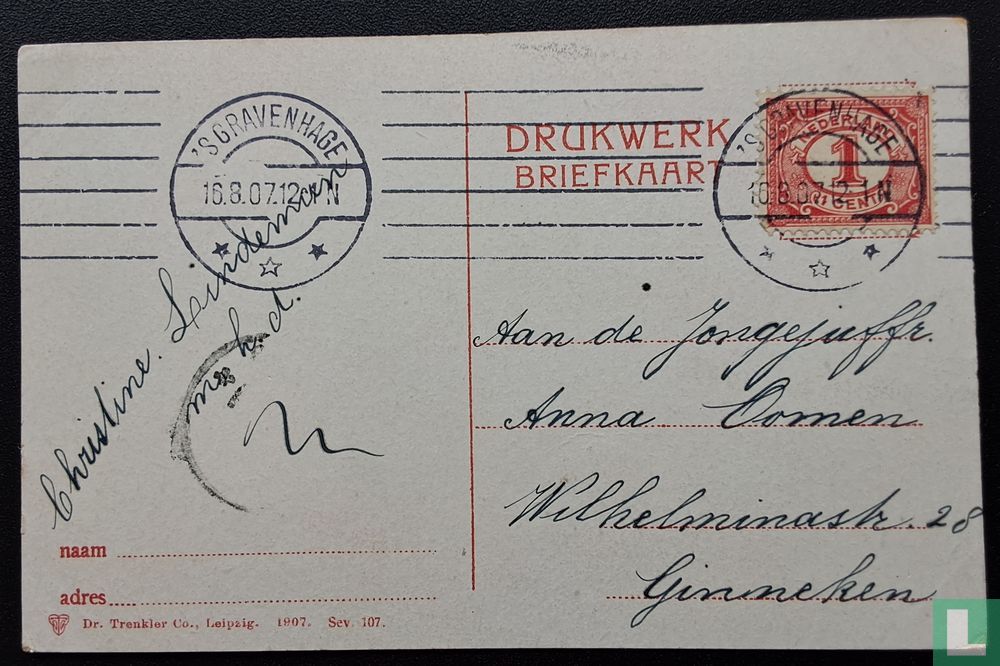 'SGRAVENHAGE
16.8.07.12-1N
'SGRAVENHAGE
16.8.07.12-1N
NEDERLAND
1
CENT
DRUKWERK
BRIEFKAART
Christine Lindeman
m. h. d.
Aan de Jongejuffr.
Anna Oomen
Wilhelminastr. 28
Ginneken
naam
adres
Dr. Trenkler Co., Leipzig. 1907. Sev. 107.